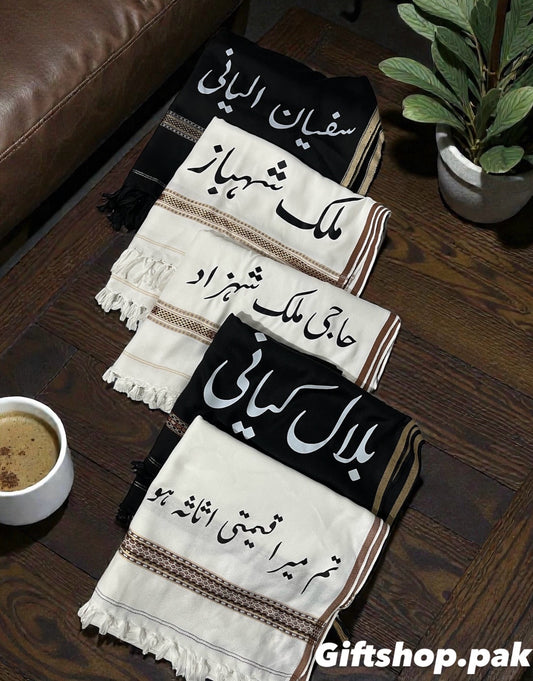 سفیان الیانی
ملک شہباز
حاجی ملک شہزاد
بلال کیانی
تم میرا قیمتی اثاثہ ہو
Giftshop.pak